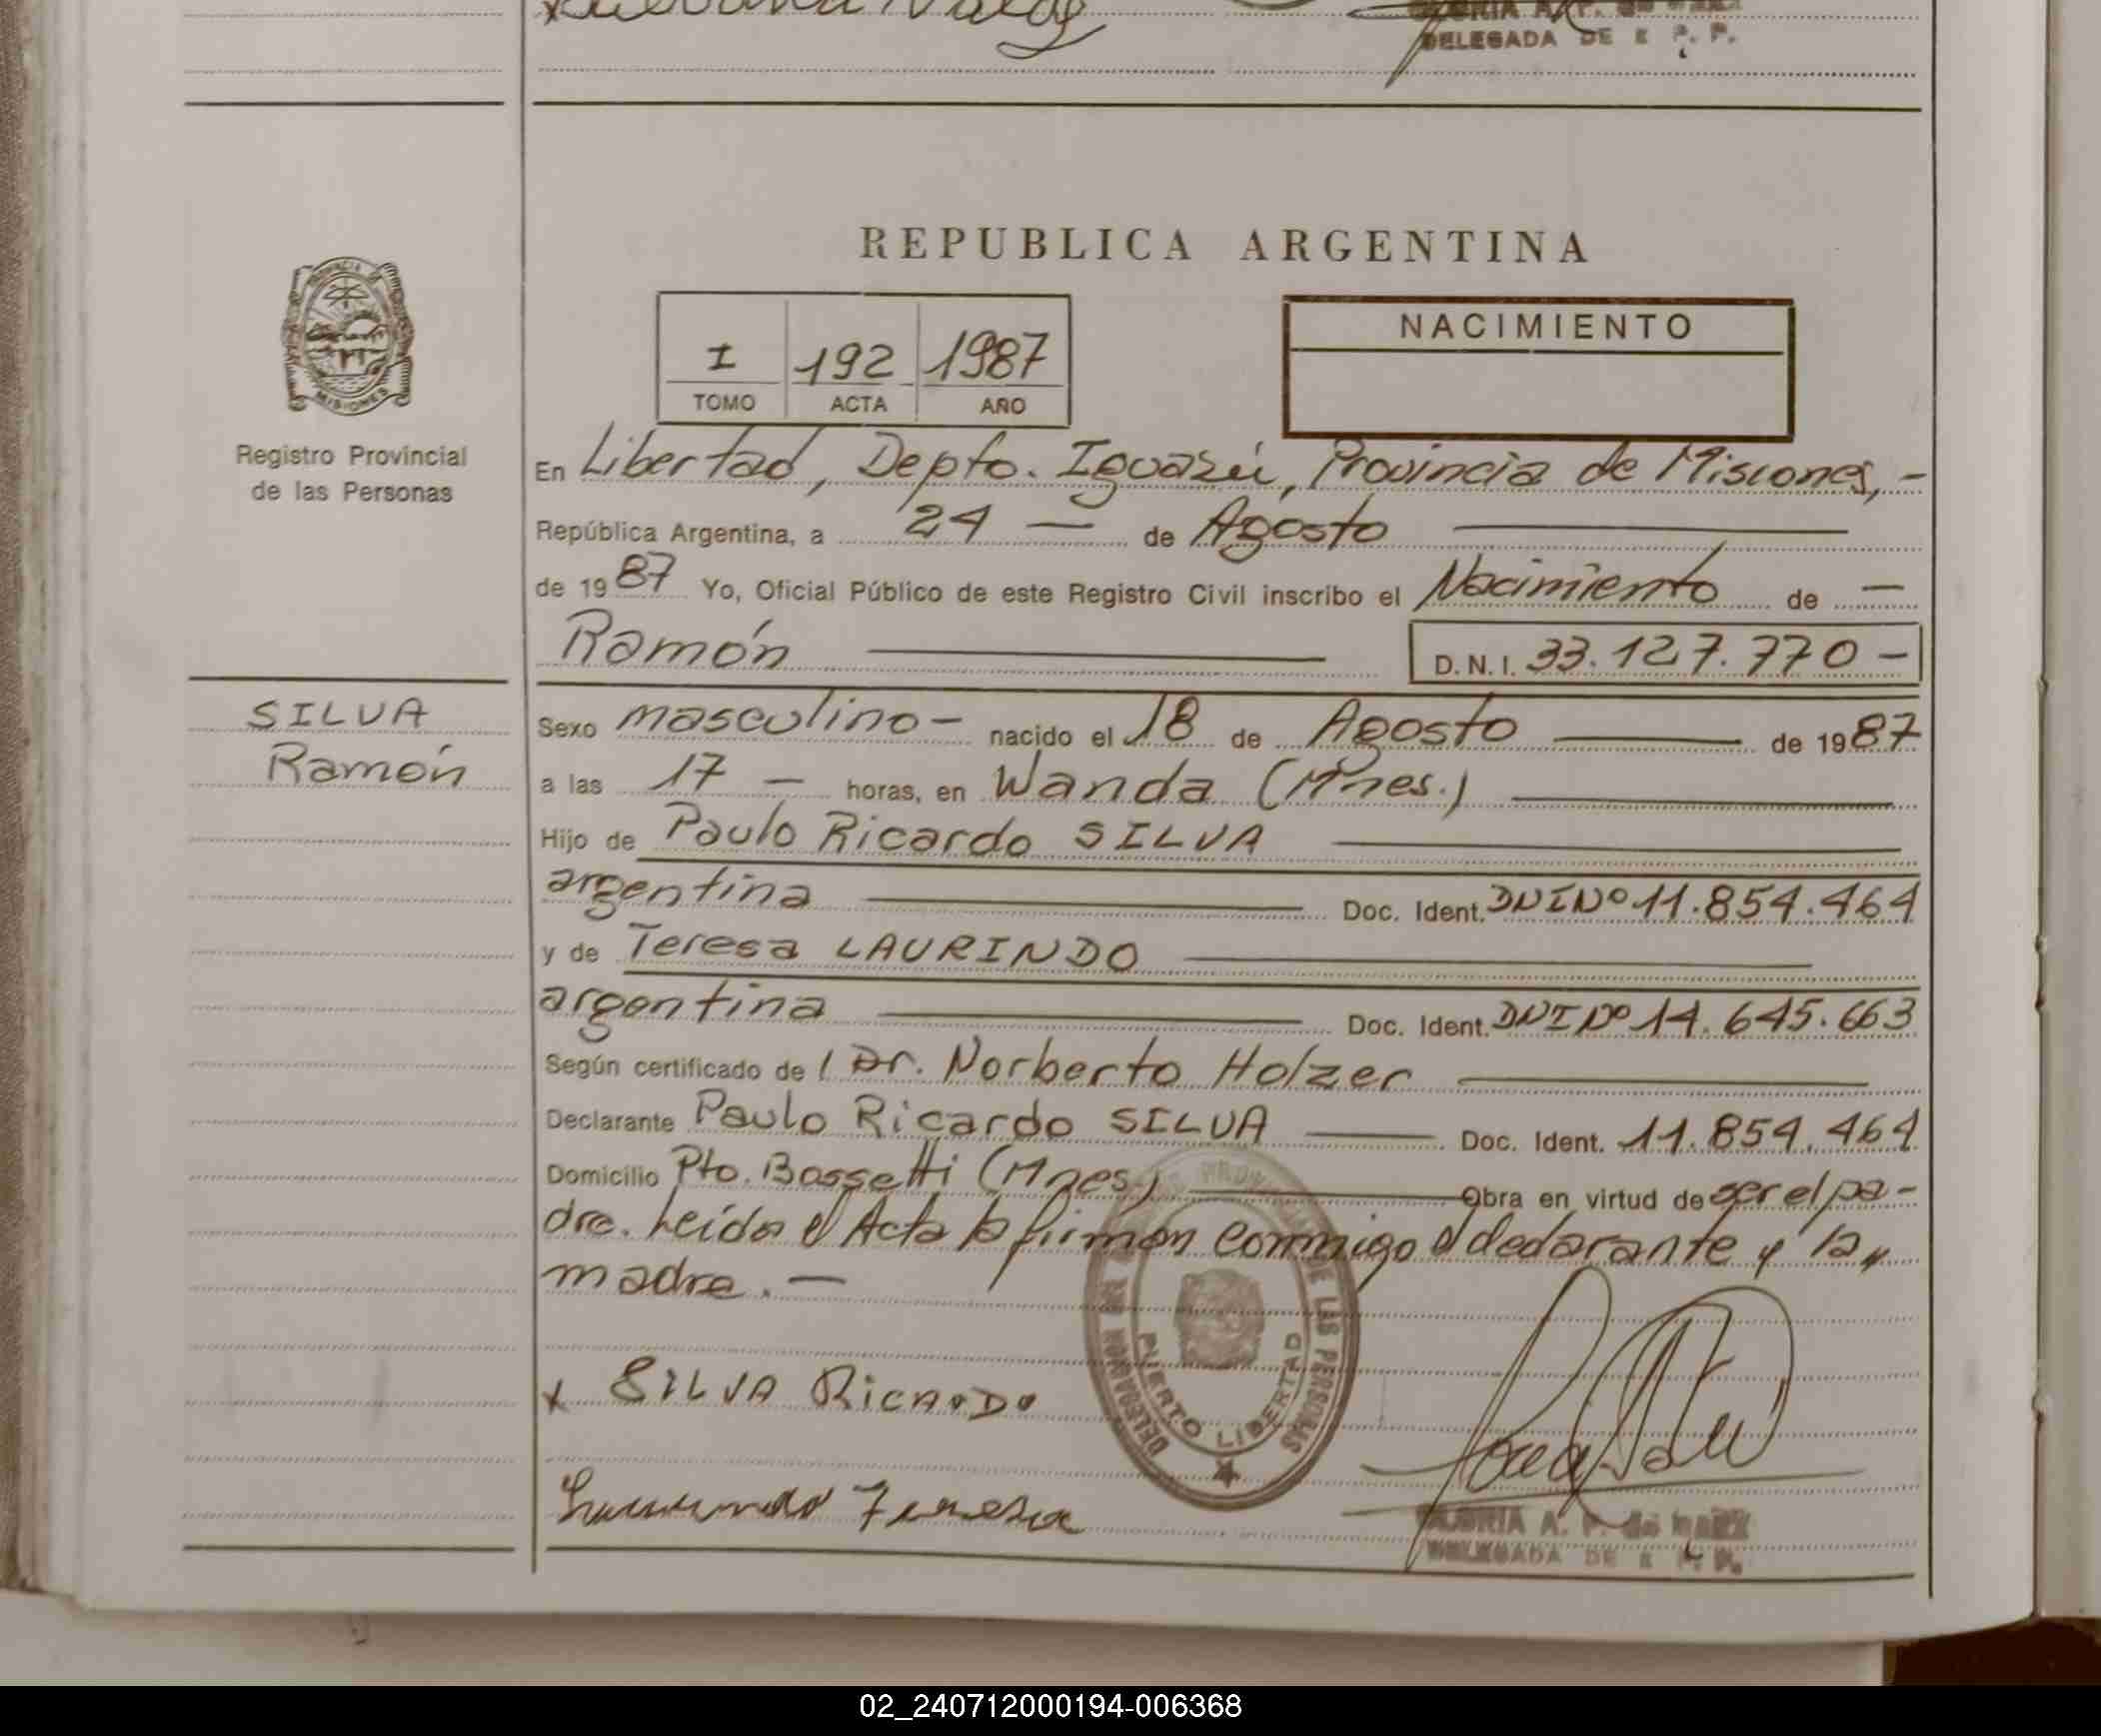 DELEGADA DE R P. P.
REPUBLICA ARGENTINA
I 192 1987
TOMO ACTA AÑO
NACIMIENTO
PROVINCIA DE
MISIONES
Registro Provincial
de las Personas
En Libertad, Depto. Iguazú, Provincia de Misiones, -
República Argentina, a 24 — de Agosto
de 1987 Yo, Oficial Público de este Registro Civil inscribo el Nacimiento de —
Ramón D. N. I. 33.127.770 -
SILVA
Ramón
Sexo masculino - nacido el 18 de Agosto de 1987
a las 17 — horas, en Wanda (Mnes.)
Hijo de Paulo Ricardo SILVA
argentina Doc. Ident. DNI Nº 11.854.464
y de Teresa LAURINDO
argentina Doc. Ident. DNI Nº 14.645.663
Según certificado de l Dr. Norberto Holzer
Declarante Paulo Ricardo SILVA Doc. Ident. 11.854.464
Domicilio Pto. Bossetti (Mnes.) Obra en virtud de ser el pa-
dre. Leída el Acta la firman conmigo el declarante y la
madre. —
DELEGACION DE LAS PERSONAS
PUERTO LIBERTAD
x SILVA RicARDO
Laurindo Teresa
GLORIA A. P. de
DELEGADA DE R P. P.
02_240712000194-006368